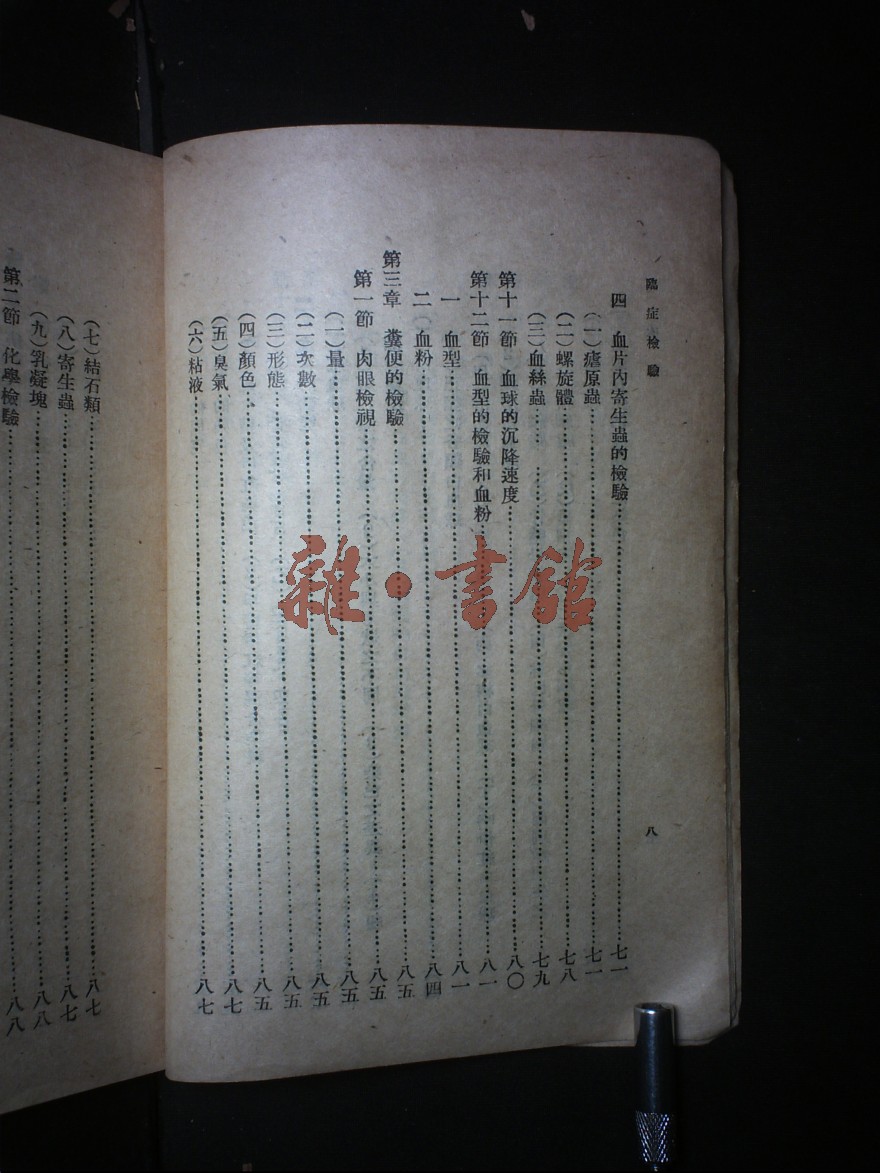 臨症檢驗
八
四 血片內寄生蟲的檢驗……七一
(一)瘧原蟲……七一
(二)螺旋體……七八
(三)血絲蟲……七九
第十一節 血球的沉降速度……八〇
第十二節 血型的檢驗和血粉……八一
一 血型……八一
二 血粉……八四
第三章 糞便的檢驗……八五
第一節 肉眼檢視……八五
(一)量……八五
(二)次數……八五
(三)形態……八五
(四)顏色……八五
(五)臭氣……八七
(六)粘液……八七
(七)結石類……八七
(八)寄生蟲……八七
(九)乳凝塊……八八
第二節 化學檢驗……八八
雜·書館